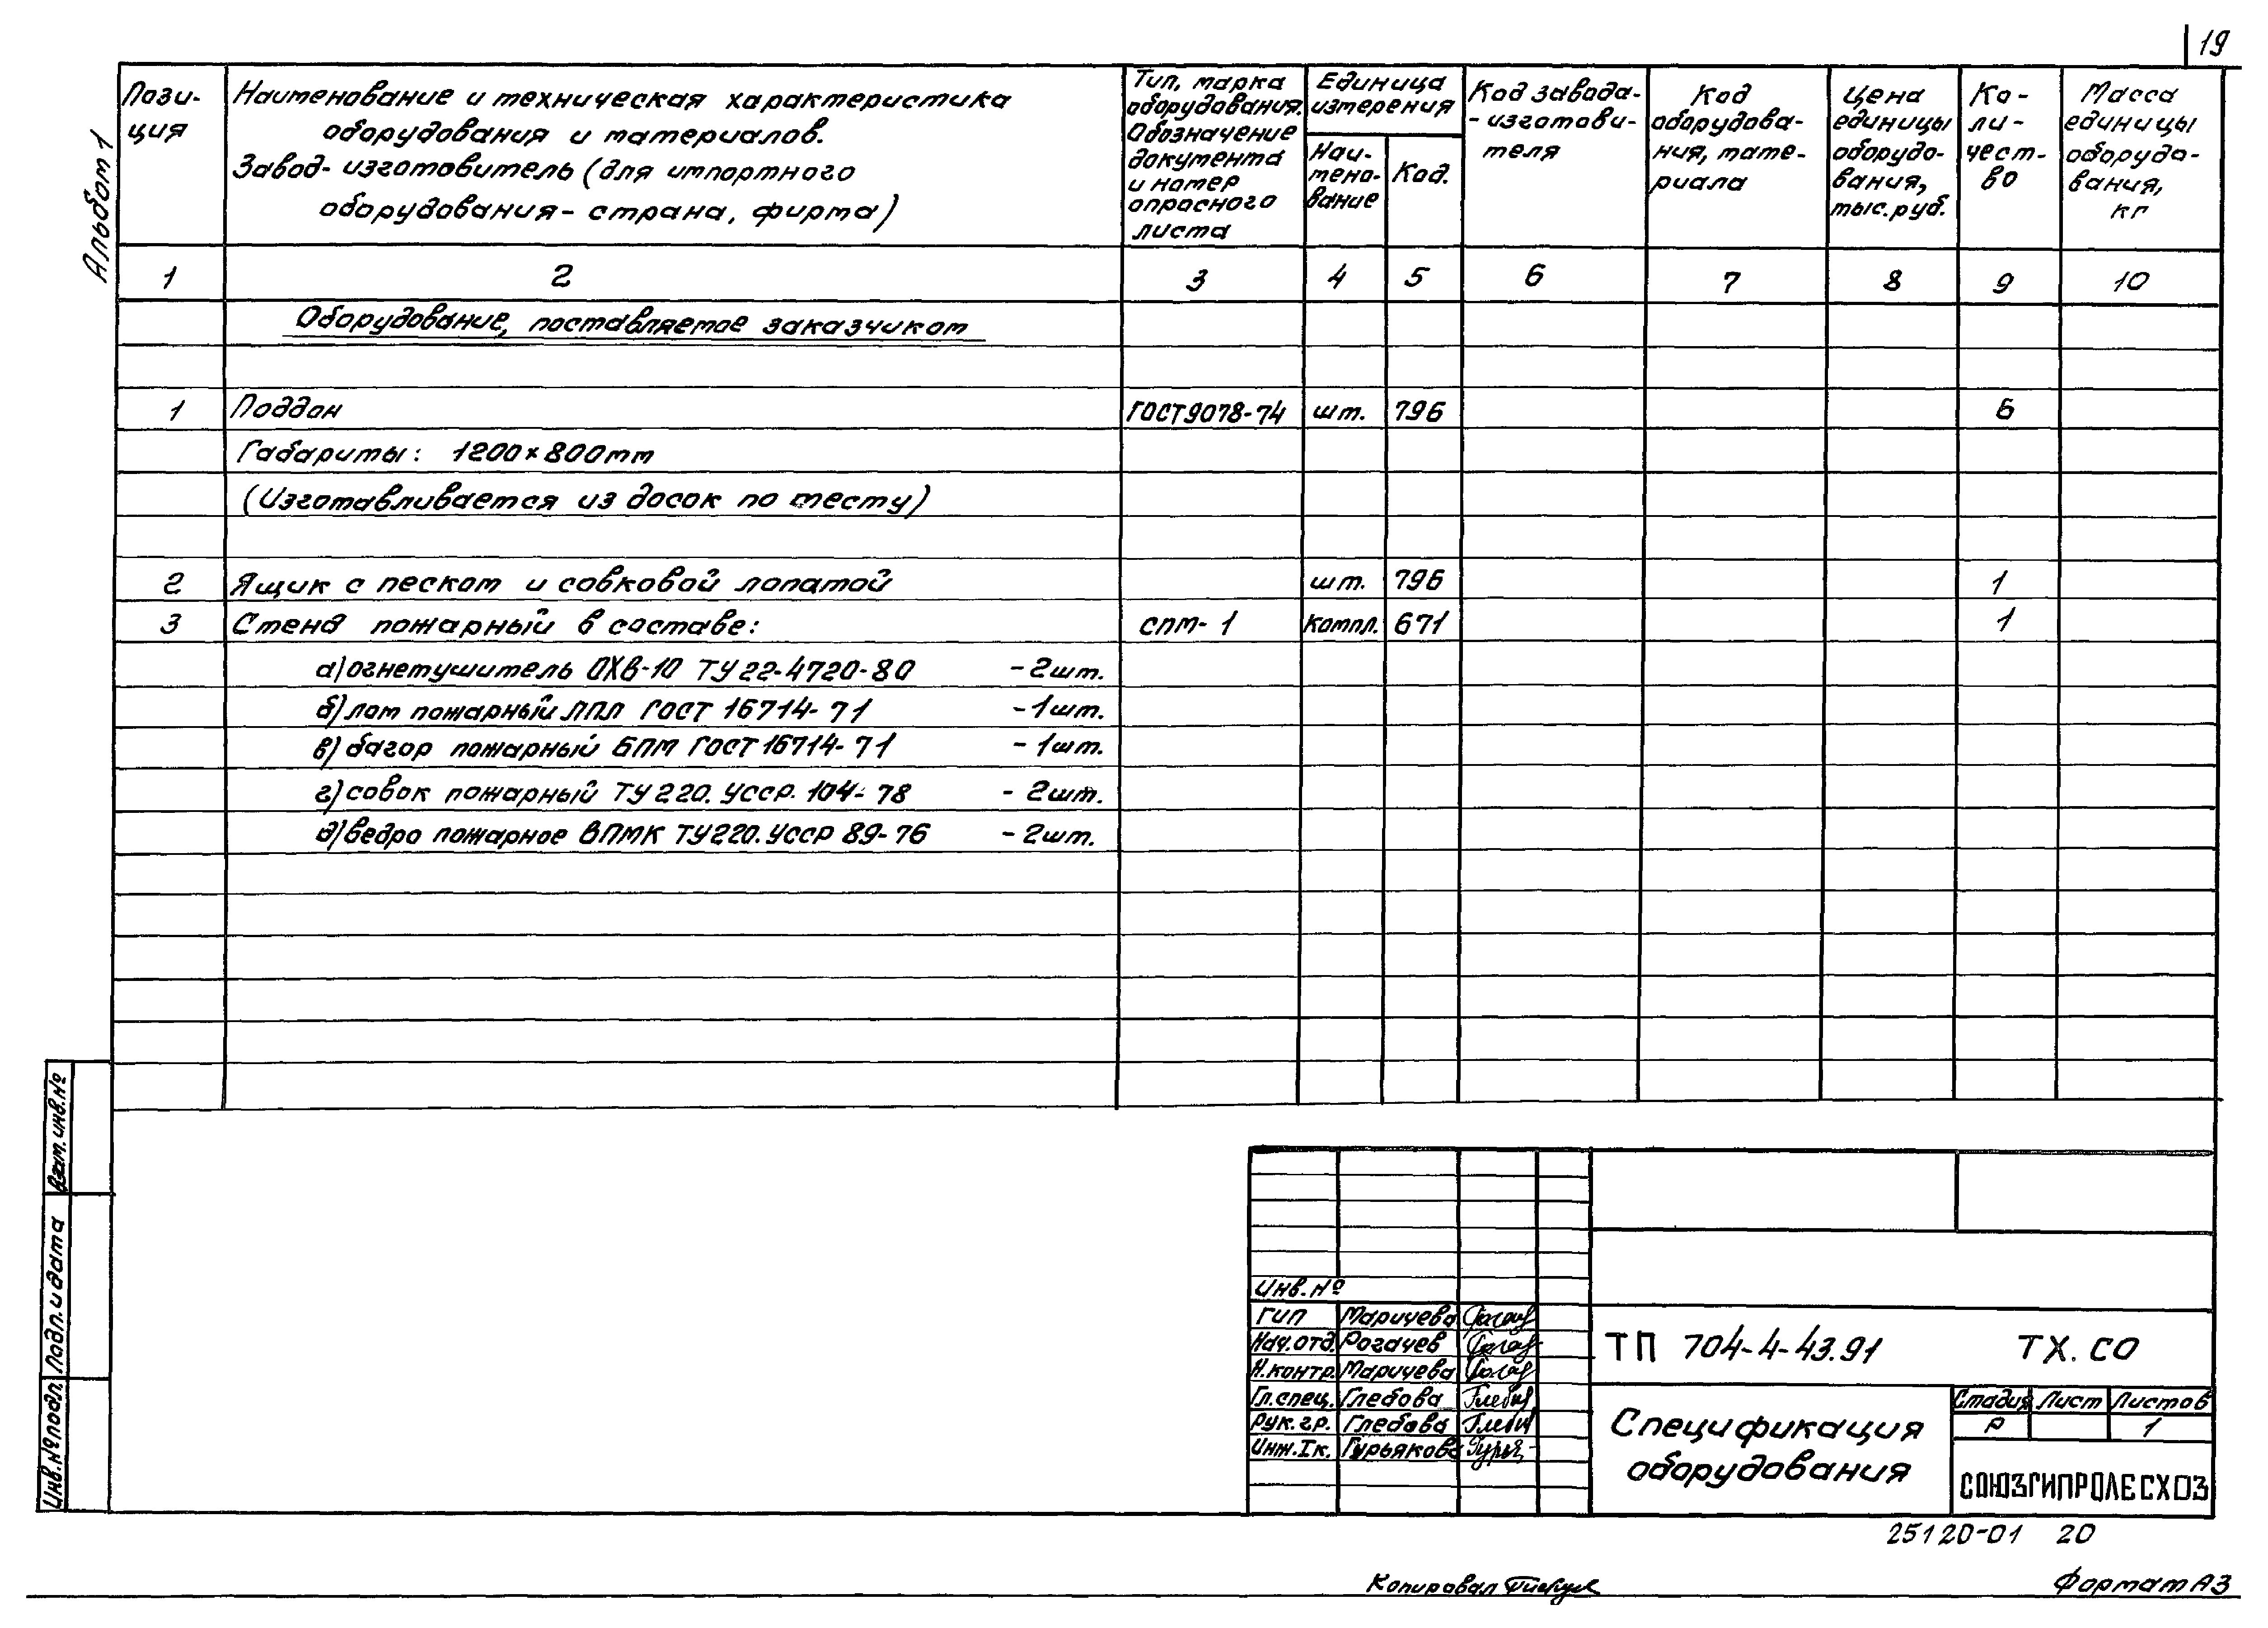 19
Альбом 1
Пози-
ция
Наименование и техническая характеристика
оборудования и материалов.
Завод-изготовитель (для импортного
оборудования - страна, фирма)
Тип, марка
оборудования.
Обозначение
документа
и номер
опросного
листа
Единица
измерения
Наи-
мено-
вание
Код.
Код завода-
-изготови-
теля
Код
оборудова-
ния, мате-
риала
Цена
единицы
оборудо-
вания,
тыс. руб.
Ко-
ли-
чест-
во
Масса
единицы
оборудо-
вания,
кг
1 2 3 4 5 6 7 8 9 10
Оборудование, поставляемое заказчиком
1 Поддон ГОСТ 9078-74 шт. 796 6
Габариты: 1200×800мм
(Изготавливается из досок по месту)
2 Ящик с песком и совковой лопатой шт. 796 1
3 Стенд пожарный в составе: СПМ-1 компл. 671 1
а) огнетушитель ОХВ-10 ТУ 22-4720-80 - 2шт.
б) лом пожарный ЛПЛ ГОСТ 16714-71 - 1шт.
в) багор пожарный БПМ ГОСТ 16714-71 - 1шт.
г) совок пожарный ТУ 220. УССР. 104-78 - 2шт.
д) ведро пожарное ВПМК ТУ 220. УССР 89-76 - 2шт.
Взам. инв. №
Подп. и дата
Инв. № подл.
Инв. №
ГИП Маричева
Нач. отд. Рогачев
Н. контр. Маричева
Гл. спец. Глебова
Рук. гр. Глебова
Инж. Iк. Гурьякова
ТП 704-4-43.91 ТХ. СО
Спецификация
оборудования
Стадия Лист Листов
Р 1
СОЮЗГИПРОЛЕСХОЗ
25120-01 20
Копировал
Формат А3